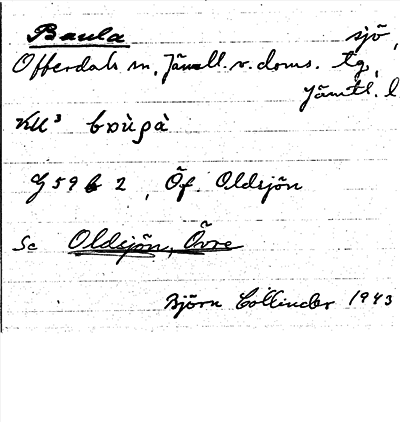 Baula sjö,
Offerdals sn, Jämtl. v. doms. tg,
Jämtl. l
KU³ bɒùpà
G 59 b 2, Öf. Oldsjön
Se Oldsjön, Övre
Björn Collinder 1943